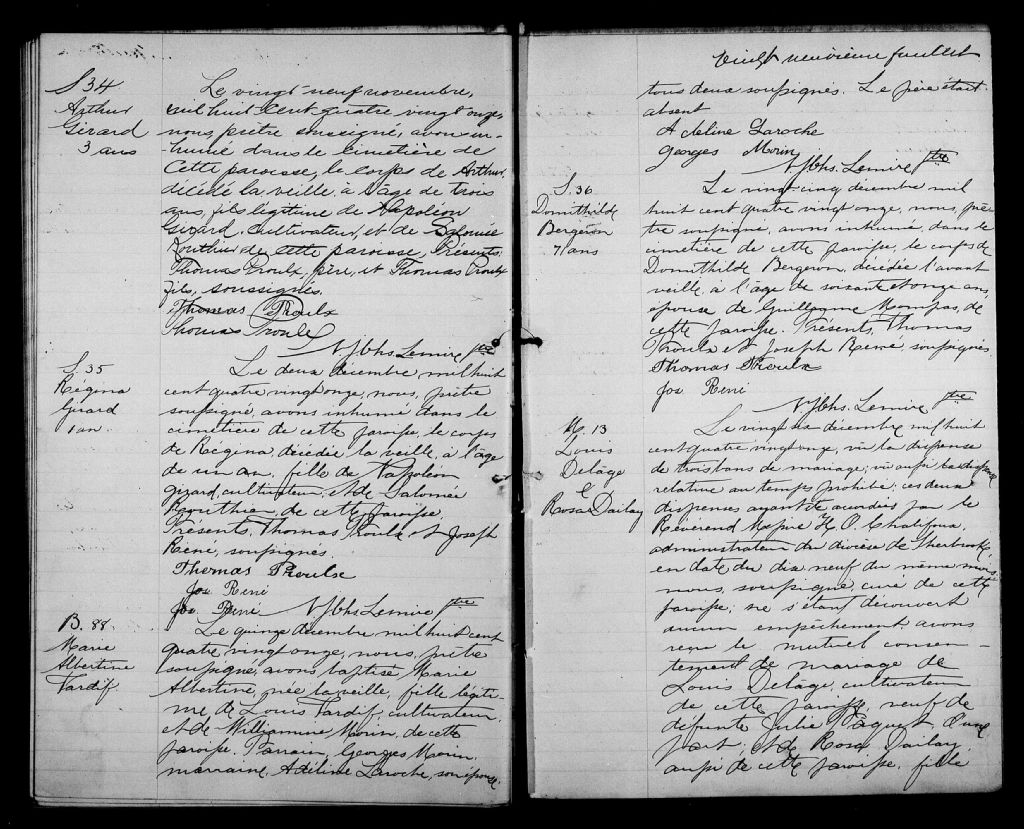 S 34
Arthur
Girard
3 ans
Le vingt-neuf novembre,
mil huit cent quatre vingt onze,
nous, prêtre soussigné, avons in-
humé dans le cimetière de
cette paroisse, le corps de Arthur,
décédé la veille à l'âge de trois
ans, fils légitime de Napoléon
Girard, cultivateur, et de Salomée
Routhier de cette paroisse, Présents,
Thomas Proulx, père, et Thomas Proulx
fils, soussignés.
Thomas Proulx
Thomas Proulx
N. Jphs. Lemire ptre
S. 35
Régina
Girard
1 an.
Le deux décembre mil huit
cent quatre vingt onze, nous, prêtre
soussigné, avons inhumé dans le
cimetière de cette paroisse, le corps
de Régina, décédée la veille, à l'âge
de un an, fille de Napoléon
Girard, cultivateur, et de Salomée
Routhier, de cette paroisse.
Présents, Thomas Proulx et Joseph
René, soussignés.
Thomas Proulx
Jos René
Jos. René N. Jphs Lemire ptre
B. 88.
Marie
Albertine
Tardif.
Le quinze décembre mil huit cent
quatre vingt onze, nous, prêtre
soussigné, avons baptisé Marie
Albertine, née la veille, fille légiti-
me de Louis Tardif, cultivateur
et de Williamine Morin, de cette
paroisse. Parrain, Georges Morin,
marraine, Adéline Laroche, son épouse,
Vingt neuvième feuillet
tous deux soussignés. Le père était
absent
Adeline Laroche
Georges Morin
N. Jphs. Lemire ptre
S. 36
Domithilde
Bergeron
71 ans
Le vingt-cinq décembre mil
huit cent quatre vingt onze, nous, prê-
tre soussigné, avons inhumé, dans le
cimetière de cette paroisse, le corps de
Domithilde Bergeron, décédée l'avant
veille, à l'âge de soixante et onze ans,
épouse de Guillaume de
cette paroisse. Présents, Thomas
Proulx et Joseph René, soussignés
Thomas Proulx
Jos René
N. Jphs. Lemire ptre
M. 13
Louis
Delâge
&
Rosa Dailay
Le vingt décembre, mil huit
cent quatre vingt onze, vu la dispense
de trois bans de mariage; vu aussi la dispense
relative au temps prohibé; ces deux
dispenses ayant été accordées par le
Révérend Messire H. O. Chalifoux,
administrateur du diocèse de Sherbrooke
en date du dix neuf du même mois,
nous, soussigné, curé de cette
paroisse, ne s'étant découvert
aucun empêchement, avons
reçu le mutuel consen-
tement de mariage de
Louis Delâge, cultivateur
de cette paroisse, veuf de
défunte Julie Paquet, d'une
part; et de Rosa Dailay,
aussi de cette paroisse, fille